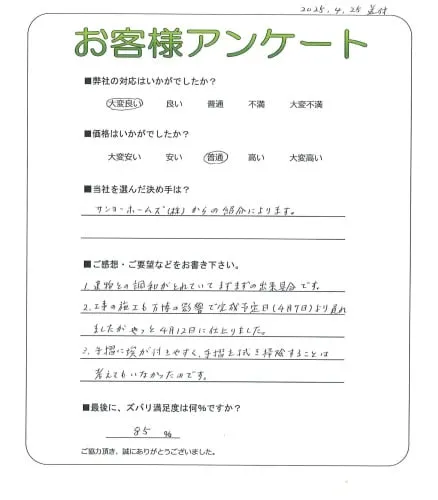 2025.4.25 送付
お客様アンケート
■弊社の対応はいかがでしたか?
大変良い 良い 普通 不満 大変不満
■価格はいかがでしたか?
大変安い 安い 普通 高い 大変高い
■当社を選んだ決め手は?
サンヨーホームズ(株)からの紹介によります。
■ご感想・ご要望などをお書き下さい。
1.建物との調和がとれていてまずまずの出来具合です。
2.工事の施工も万博の影響で完成予定日(4月7日)より遅れ
ましたがやっと4月12日に仕上りました。
3.手摺に埃が付きやすく、手摺を拭き掃除することは
考えてもいなかったのです。
■最後に、ズバリ満足度は何%ですか?
85 %
ご協力頂き、誠にありがとうございました。